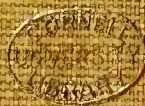 CORNELL
UNIVERSITY
LIBRARY